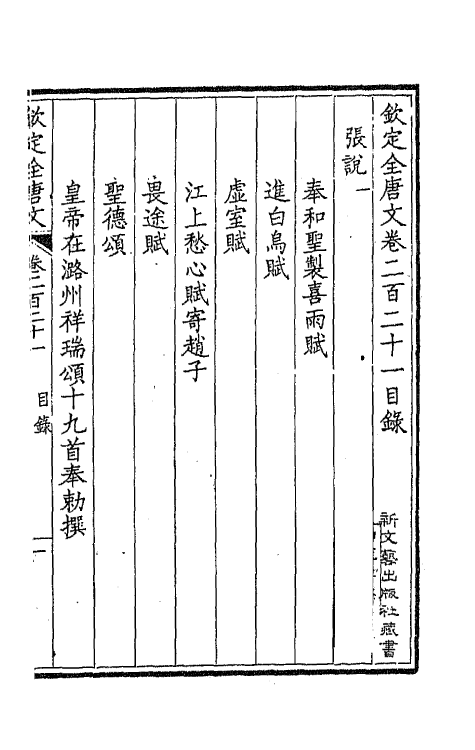 欽定全唐文卷二百二十一目錄
新文藝出版社藏書
張說一
奉和聖製喜雨賦
進白烏賦
虛室賦
江上愁心賦寄趙子
畏途賦
聖德頌
皇帝在潞州祥瑞頌十九首奉勅撰
欽定全唐文
卷二百二十一
目錄
一